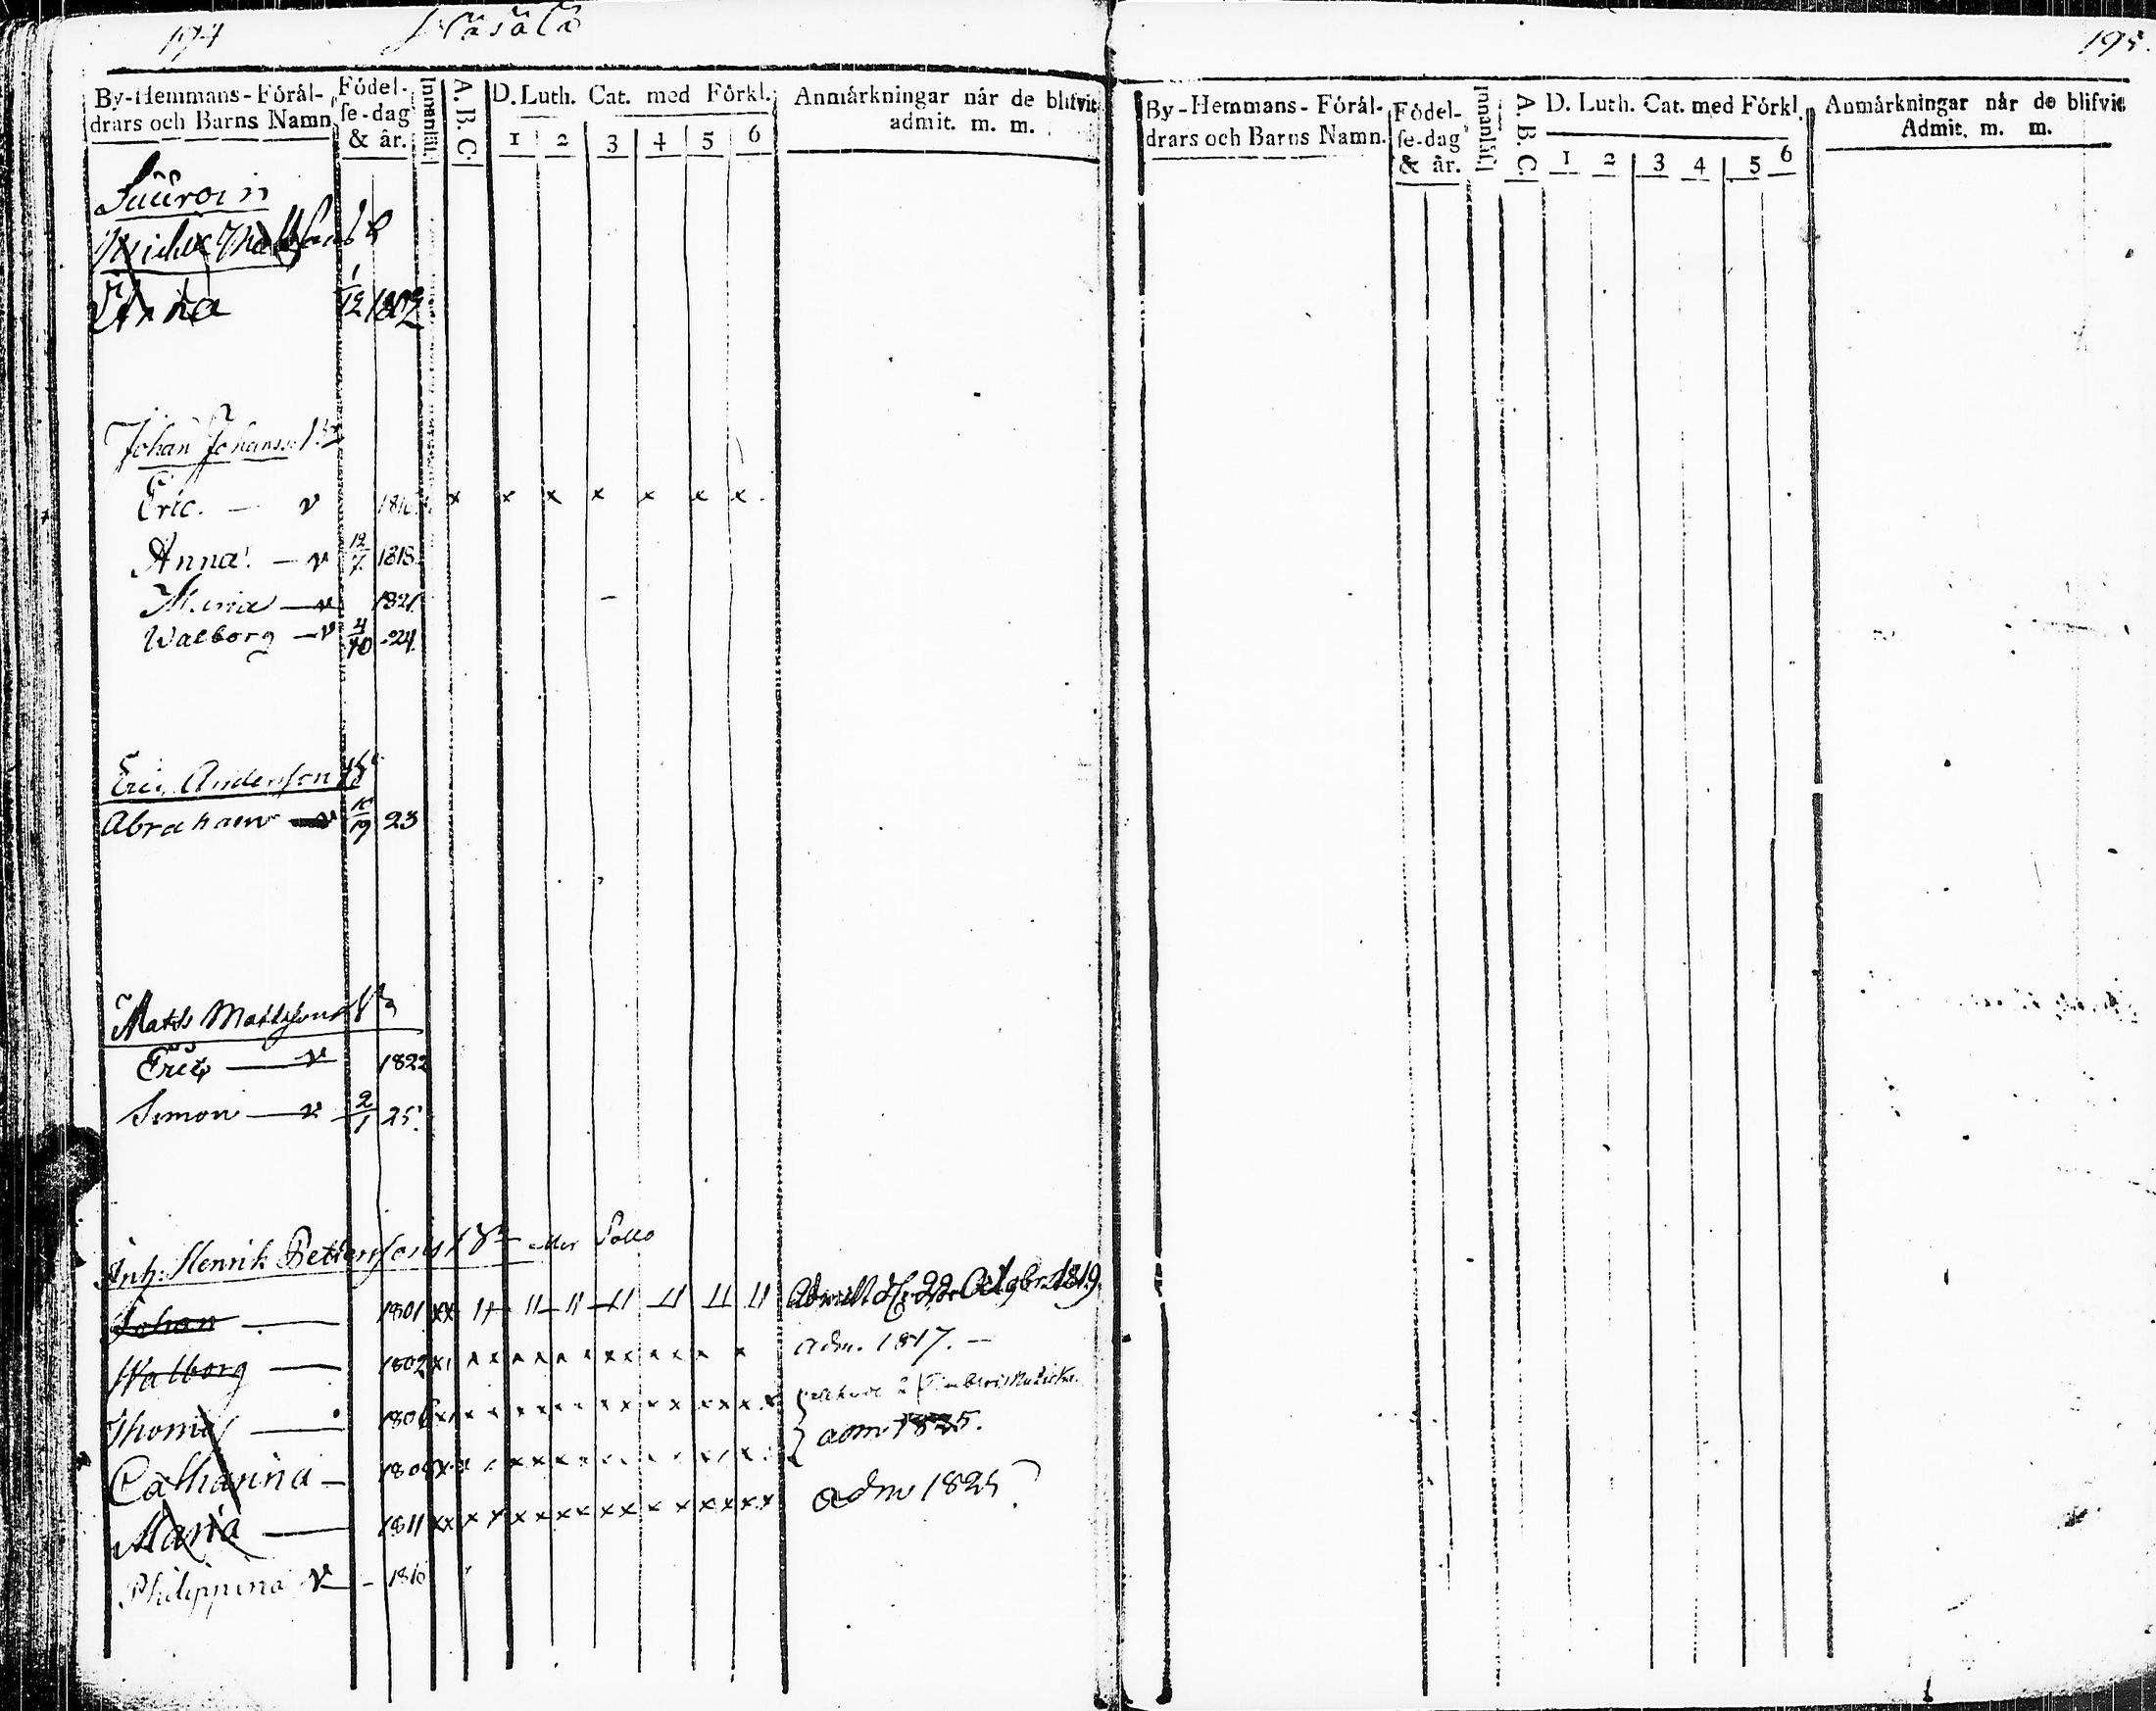 194
By-Hemmans-Förål-
drars och Barns Namn
Födel-
se-dag
& år.
Innanläs.
A. B. C.
D. Luth. Cat. med Förkl.
1 2 3 4 5 6
Anmårkningar når de blifvit
admit. m. m.
Anna 1/12 1802
Johan Johanss:
Eric. — v x x x x x x x
Anna — v 12/7 1818
Maria — v 1821
Walborg — v 4/10 -24
Eric Andersson
Abraham — v 10/19 23
Matts Mattsson
Eric — v 1822
Simon — v 2/1 25.
Inh: Henrik Pettersons
Johan — 1801 Admitt d. 22 Octobr. 1819.
Walborg — 1802 adm. 1817. —
Thomas — 1806
adm. 1825.
Catharina — 1808
Maria — 1811 adm 1825
Philippina v — 1816
195.
By-Hemmans-Förål-
drars och Barns Namn.
Födel-
se-dag
& år.
Innanläs.
A. B. C.
D. Luth. Cat. med Förkl.
1 2 3 4 5 6
Anmårkningar når de blifvit
Admit. m. m.